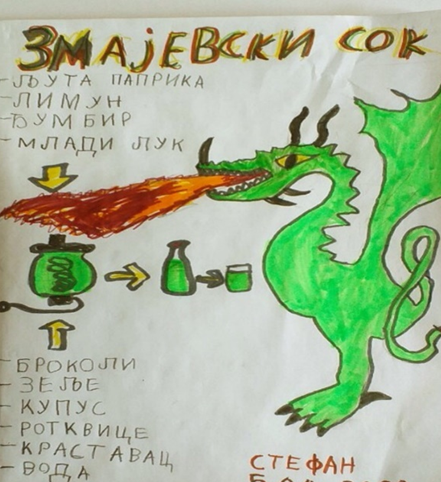 ЗМАЈЕВСКИ СОК
- ЉУТА ПАПРИКА
- ЛИМУН
- ЂУМБИР
- МЛАДИ ЛУК
- БРОКОЛИ
- ЗЕЉЕ
- КУПУС
- РОТКВИЦЕ
- КРАСТАВАЦ
- ВОДА
СТЕФАН